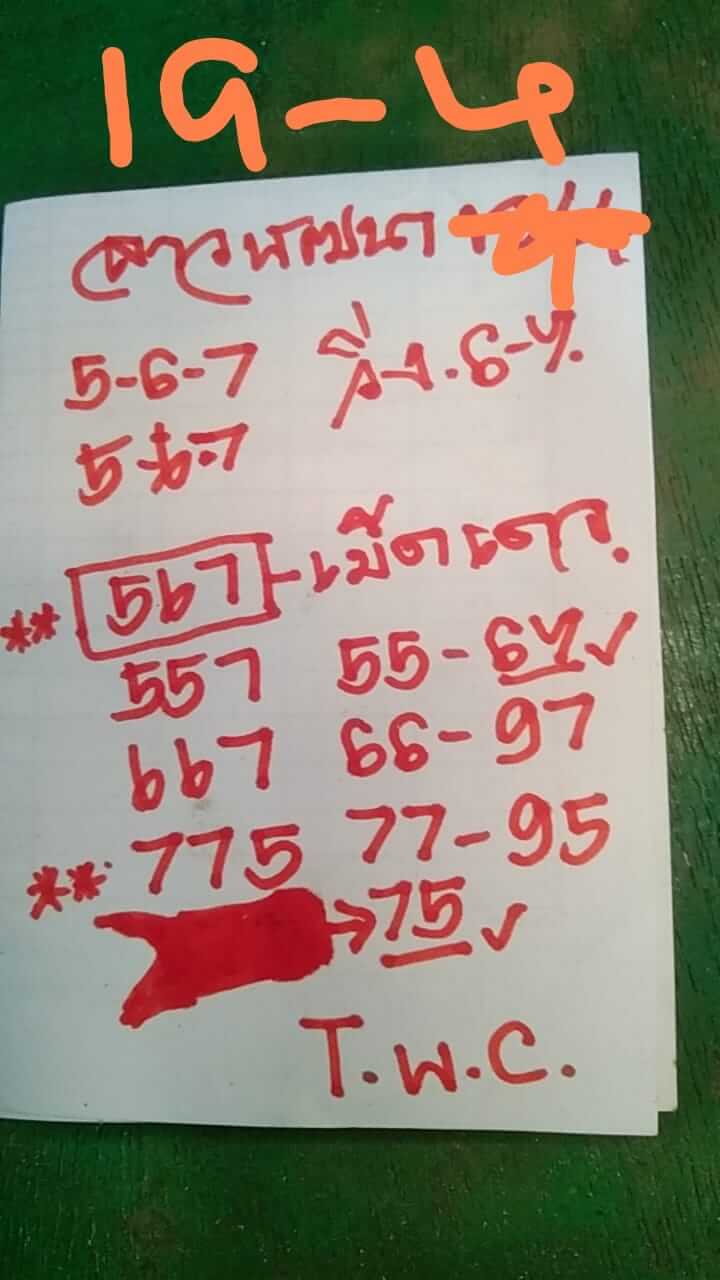 19-4
ลาวพัฒนา
5-6-7 วิ่ง.6-7.
5-6-7
** 567-เม็ดเดียว.
557 55-67✓
667 66-97
**775 77-95
→75✓
T.W.C.